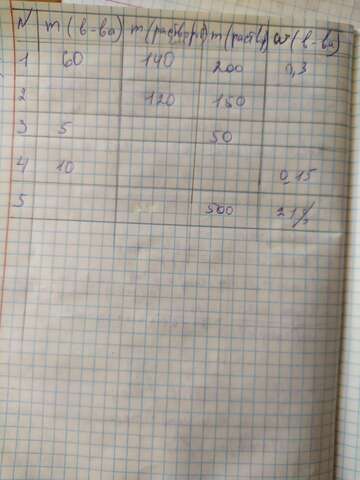 N m (в-ва) m (раств-ро) m (раств) ω (в-ва)
1 60 140 200 0,3
2 120 150
3 5 50
4 10 0,15
5 500 21%